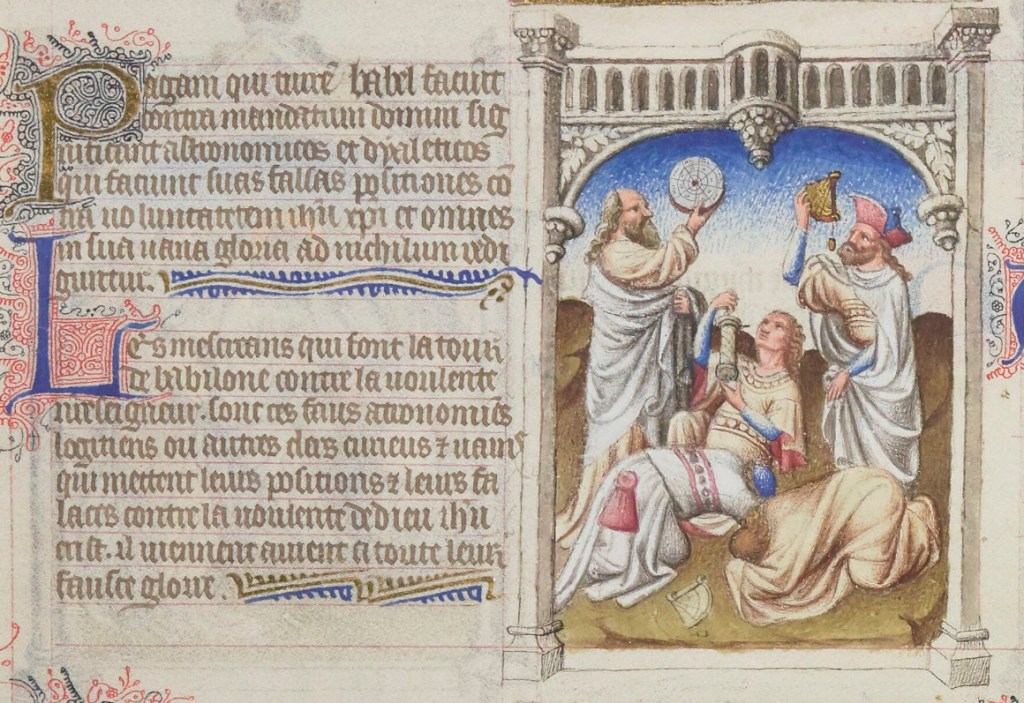 Pagani qui turrē babel faciūt
contra mandatum domini sig
nificant astronomicos et dyaleticos
qui faciunt suas falsas positiones cō
tra uoluntatetem ihū xpi et omnes
in sua uana gloria ad nichilum redi
guntur.
Les mescreans qui font la tour
de babilone contre la uoulente
nreseigneur. sont ces faus atronomiēs
logitiens ou autres clers curieus ⁊ uains
qui mettent leurs positions ⁊ leurs fa
laces contre la uoulente de dieu ihū
crist. il uiennent a nient a toute leur
fausse gloire.